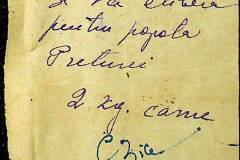 Se va elibera
pentru popota
Preturei
2 kg. carne